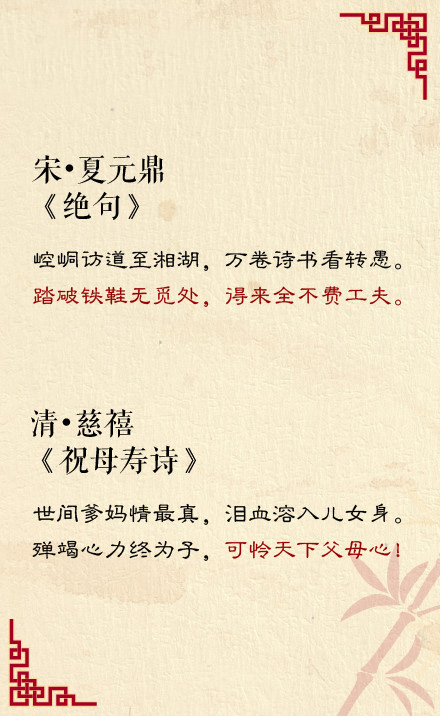 宋•夏元鼎
《绝句》
崆峒访道至湘湖，万卷诗书看转愚。
踏破铁鞋无觅处，得来全不费工夫。
清•慈禧
《祝母寿诗》
世间爹妈情最真，泪血溶入儿女身。
殚竭心力终为子，可怜天下父母心！